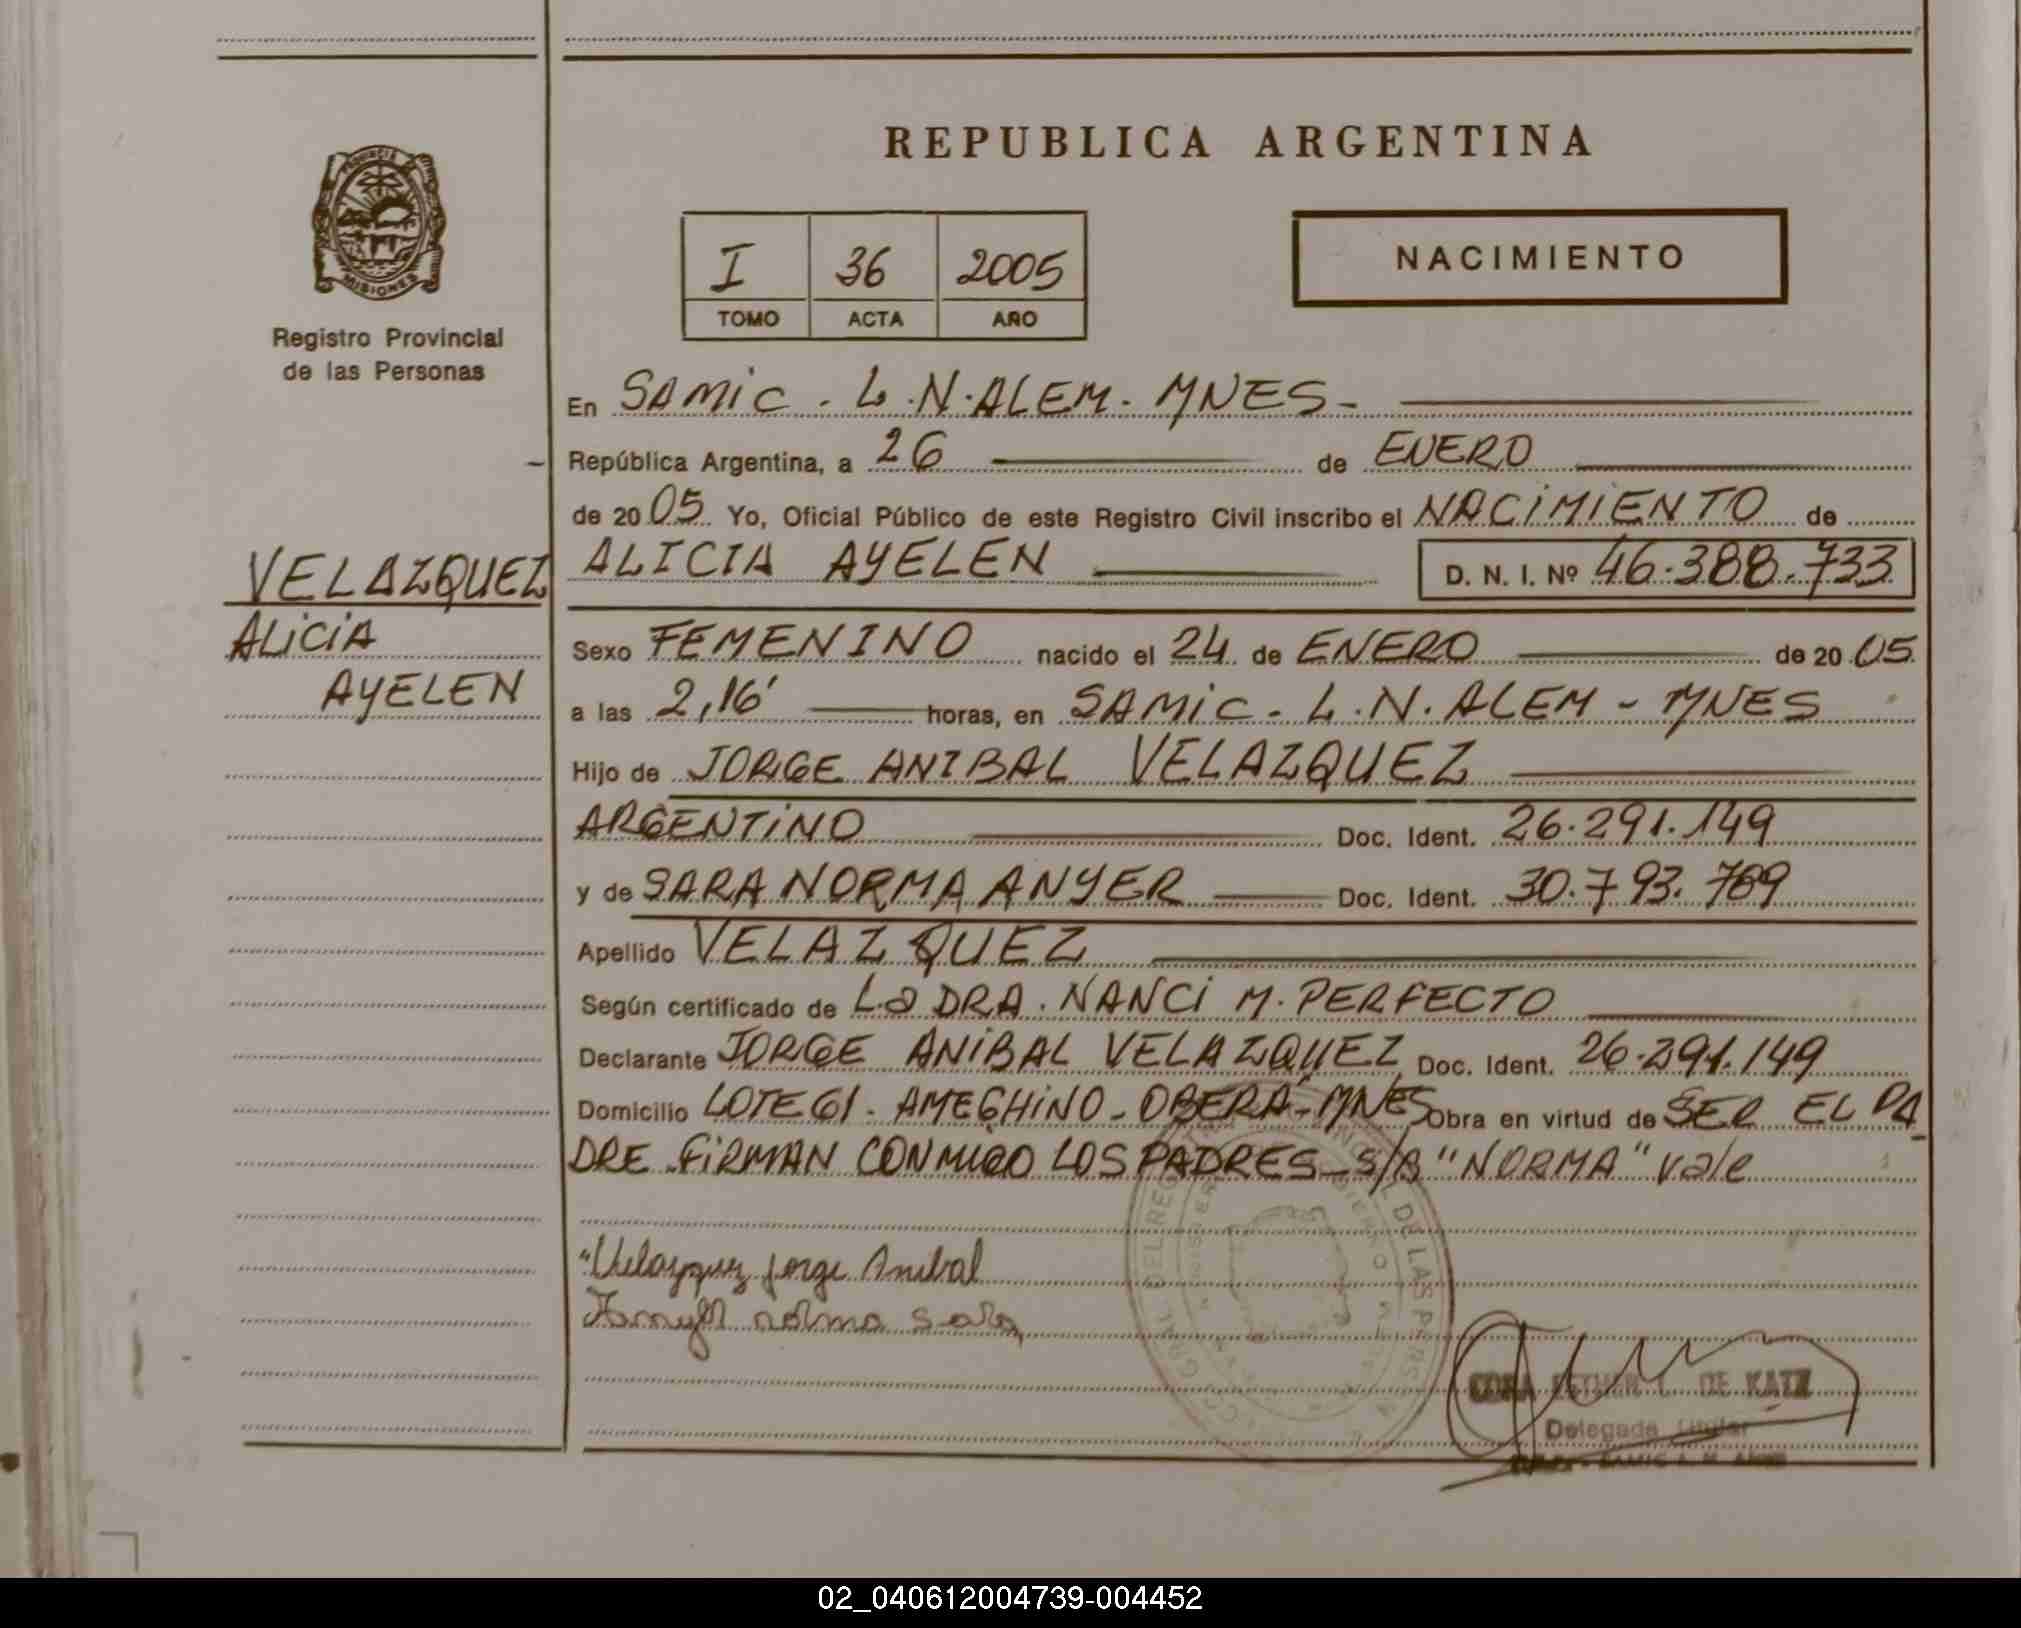 REPUBLICA ARGENTINA
PROVINCIA DE
MISIONES
Registro Provincial
de las Personas
I 36 2005
TOMO ACTA AÑO
NACIMIENTO
En SAMIC - L.N.ALEM - MNES -
República Argentina, a 26 de ENERO
de 2005 Yo, Oficial Público de este Registro Civil inscribo el NACIMIENTO de
VELAZQUEZ
ALICIA
AYELEN
ALICIA AYELEN D. N. I. Nº 46.388.733
Sexo FEMENINO nacido el 24 de ENERO de 2005
a las 2,16' horas, en SAMIC - L.N. ALEM - MNES
Hijo de JORGE ANIBAL VELAZQUEZ
ARGENTINO Doc. Ident. 26.291.149
y de SARA NORMA ANYER Doc. Ident. 30.793.769
Apellido VELAZQUEZ
Según certificado de La DRA. NANCI M. PERFECTO
Declarante JORGE ANIBAL VELAZQUEZ Doc. Ident. 26.291.149
Domicilio LOTE 61 - AMEGHINO - OBERÁ - MNES Obra en virtud de SER EL PA
DRE FIRMAN CONMIGO LOS PADRES - S/A "NORMA" vale
Velazquez jorge Anibal
norma sara
ESTHER DE KATZ
Delegada Titular
02_040612004739-004452